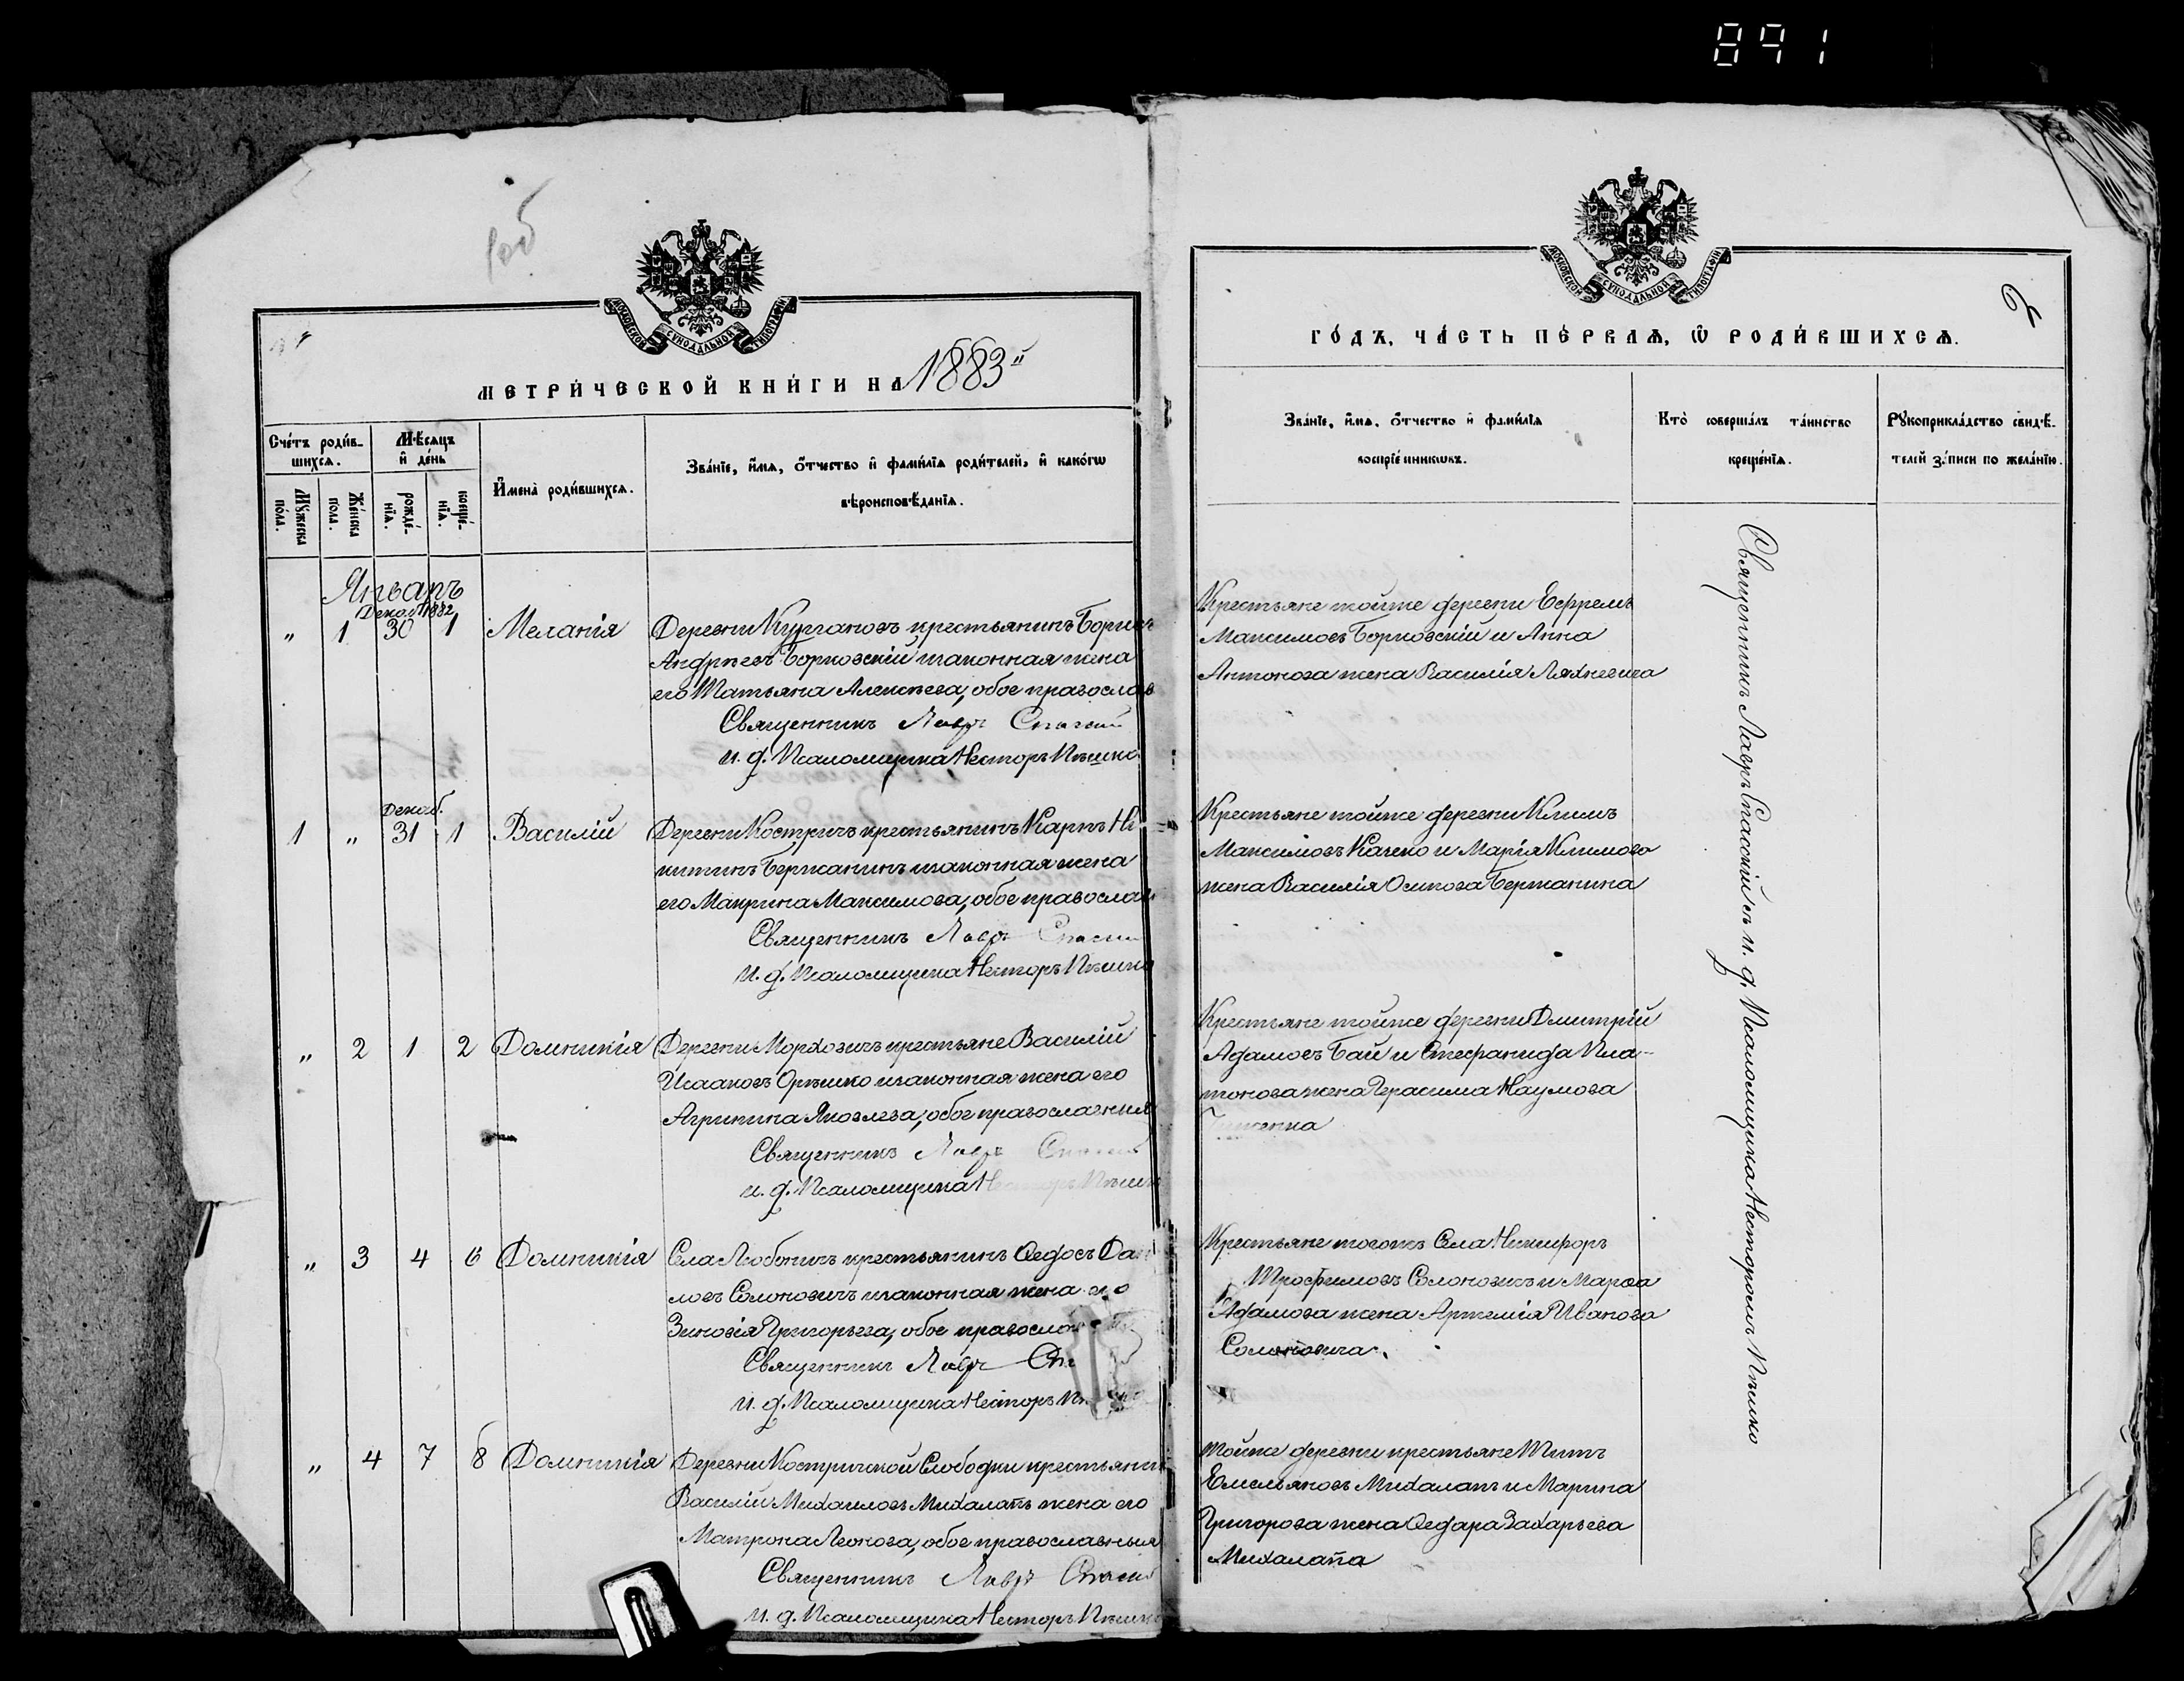 891
МОСКОВСКОЙ СѴНОДАЛЬНОЙ ТИПОГРАФІИ
МЕТРИ́ЧЕСКОЙ КНИ́ГИ НА 1883й
Сче́тъ роди́вшихсѧ.
Мѣ́сѧцъ и҆ де́нь
И҆мена̀ роди́вшихсѧ.
Зва́нїе, и҆́мѧ, ѻ҆́тчество и҆ фами́лїѧ роди́телей, и҆ како́гѡ
вѣроисповѣ́данїѧ.
Мꙋ́жеска по́ла.
Же́нска по́ла.
рожде́нїѧ.
креще́нїѧ.
Январь
Декаб 1882
" 1 30 1 Меланія
Деревни Кургановъ крестьянинъ Борисъ
Андреевъ Борковскій законная жена
его Татьяна Алексѣева, обое православ
Священникъ Лавръ Спасскій
и. д. Псаломщика Несторъ Пѣшко
Декаб.
1 " 31 1 Василій
Деревни Костричъ крестьянинъ Карпъ Ни
китинъ Бержанинъ законная жена
его Макрина Максимова, обое православ
Священникъ Лавръ Спасскій
и. д. Псаломщика Несторъ Пѣшко
" 2 1 2 Домникія
Деревни Морховичъ крестьяне Василій
Исааковъ Орѣшко законная жена его
Агрипина Яковлева, обое православныя
Священникъ Лавръ
и. д. Псаломщика
" 3 4 6 Домникія
Села Любоничъ крестьянинъ Ѳедосъ Дани
ловъ Солоновичъ законная жена его
Зиновія Григорьева, обое правослов
Священникъ Лавръ
и. д. Псаломщика Несторъ
" 4 7 8 Домникія
Деревни Костричской Слободки крестьянинъ
Василій Михаиловъ Михалапъ жена его
Матрона Леонова, обое православныя
Священникъ Лавръ Спасскій
и. д. Псаломщика Несторъ Пѣшко
МОСКОВСКОЙ СѴНОДАЛЬНОЙ ТИПОГРАФІИ
2
ГО́ДЪ, ЧА́СТЬ ПЕ́РВАѦ, Ѿ РОДИ́ВШИХСѦ.
Зва́нїе, и҆́мѧ, ѻ҆́тчество и҆ фами́лїѧ
воспрїе́мникѡвъ.
Кто̀ соверша́лъ та́инство
креще́нїѧ.
Рꙋкоприкла́дство свидѣ́-
телей за́писи по жела́нїю.
Крестьяне тойже деревни Ефремъ
Максимовъ Борковскій и Анна
Антонова жена Василія Ляхневича
Крестьяне тойже деревни Климъ
Максимовъ Качено и Марія Климова
жена Василія Осипова Бержанина
Крестьяне тойже деревни Дмитрій
Адамовъ Бай и Стефанида Пла-
тонова жена Герасима Наумова
Крестьяне тогожъ Села Никифоръ
Трофимовъ Солоновичъ и Марѳа
Адамова жена Артемія Иванова
Солоновича.
Тойже деревни крестьяне Титъ
Емельяновъ Михалапъ и Марина
Григорова жена Ѳедара Захарьева
Михалапа
Священникъ Лавръ Спасскій съ и. д. Псаломщика Несторомъ Пѣшко